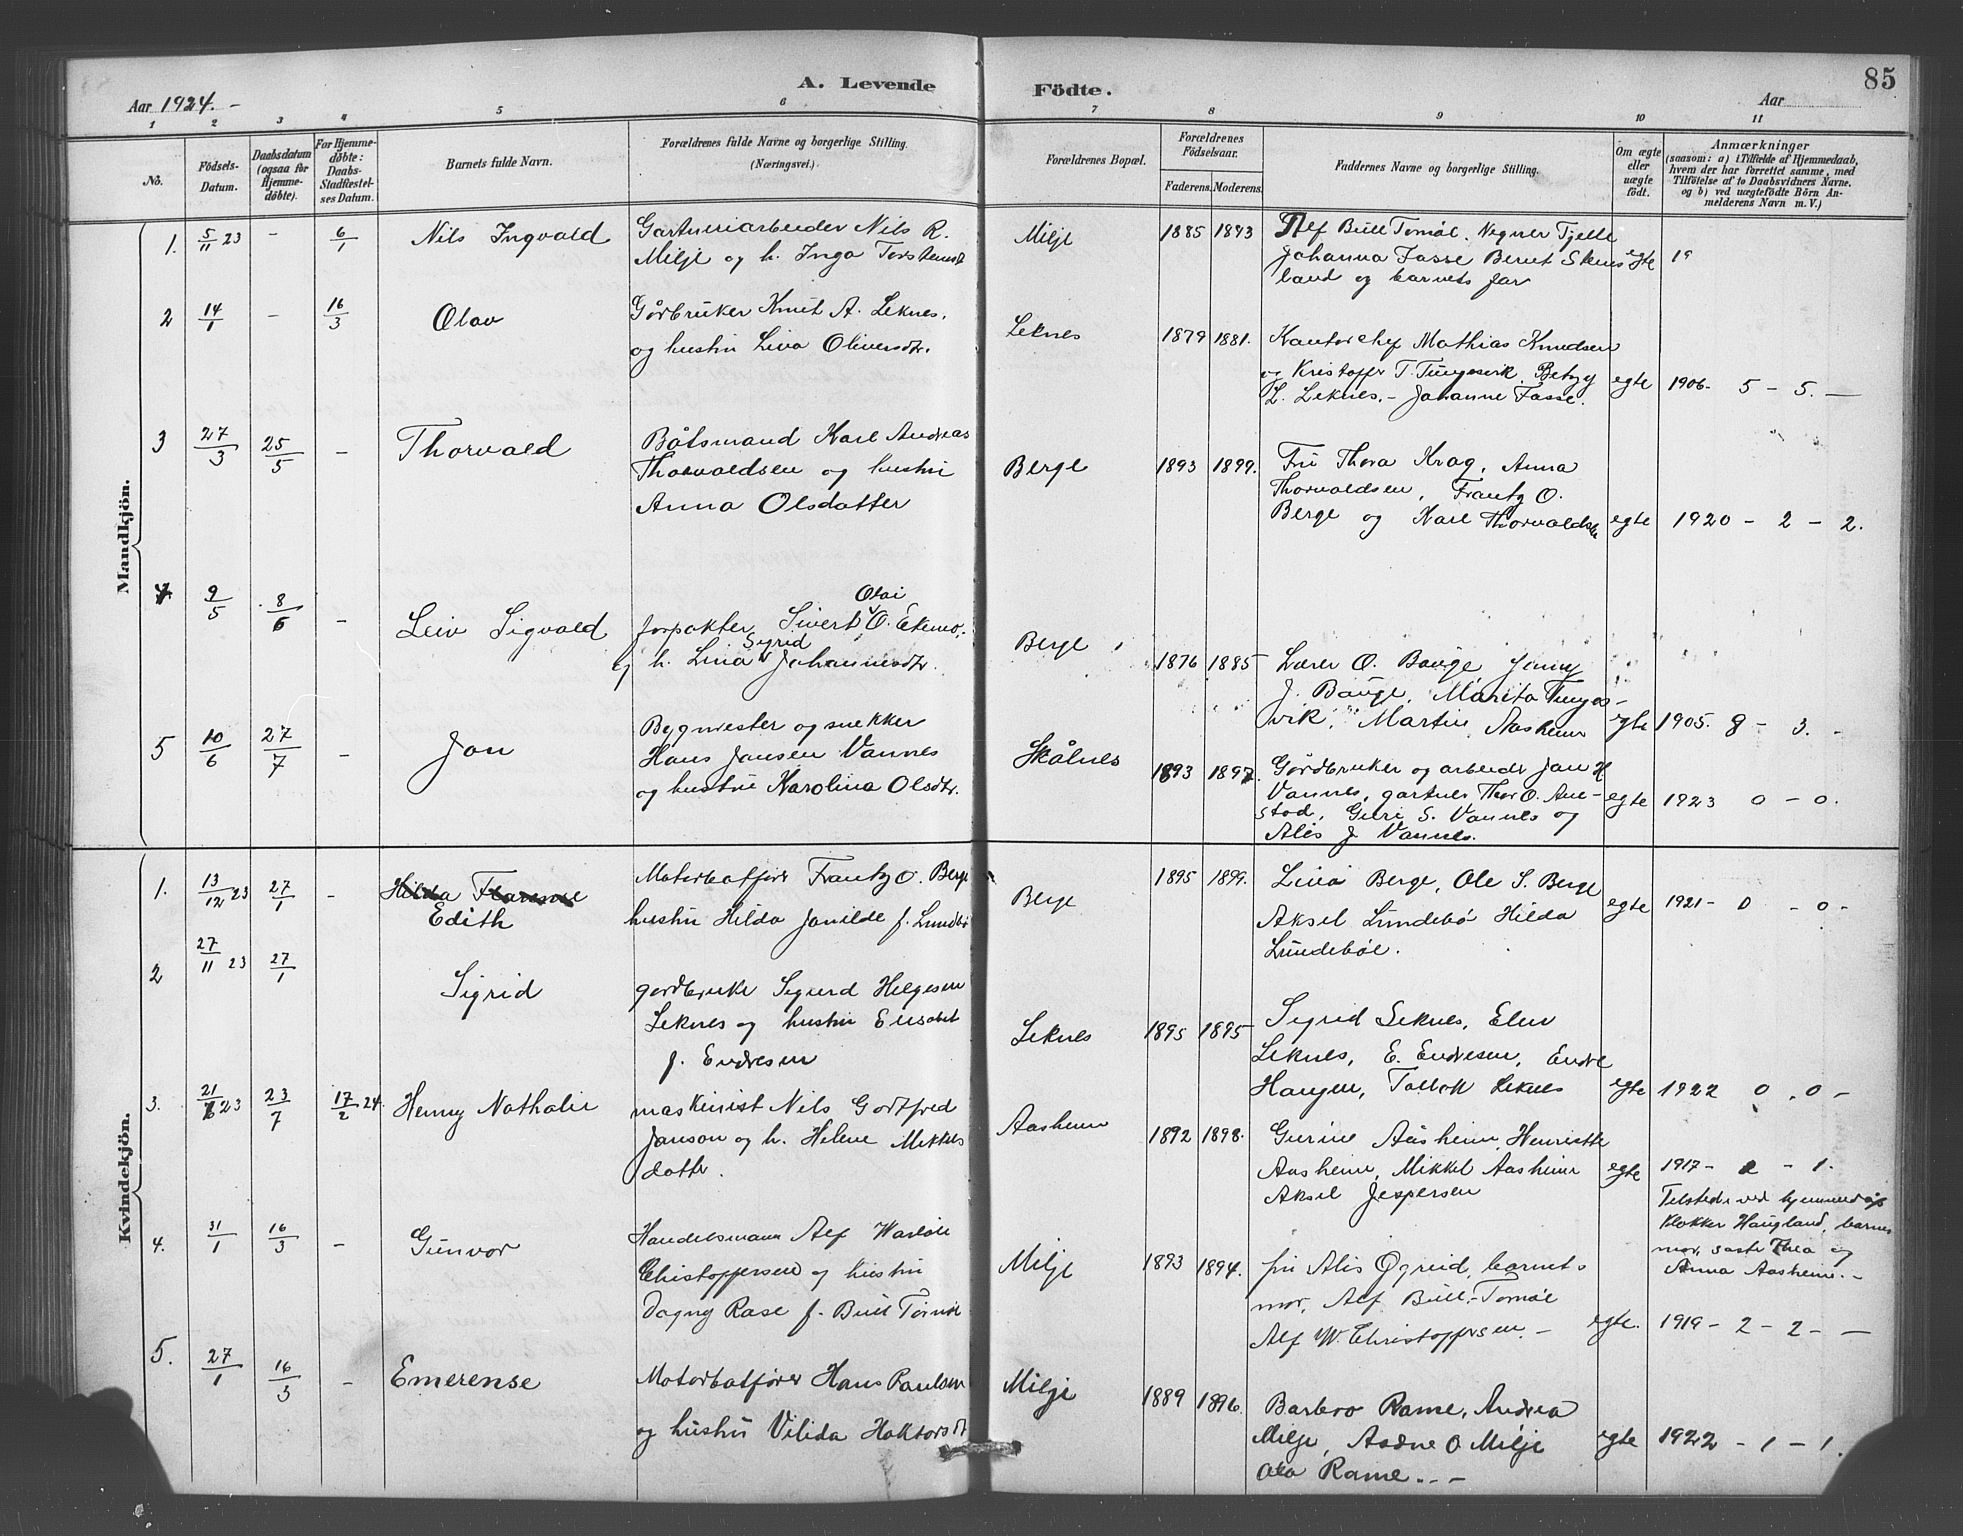 A. Levende Födte.
85
Aar 1924. -
Aar
1 2 3 4 5 6 7 8 9 10 11
No.
Födsels-
Datum.
Daabsdatum
(ogsaa for
Hjemme-
döbte).
For Hjemme-
döbte:
Daabs-
Stadfæstel-
ses Datum.
Barnets fulde Navn.
Forældrenes fulde Navne og borgerlige Stilling.
(Næringsvei.)
Forældrenes Bopæl.
Forældrenes
Födselsaar.
Faderens. Moderens.
Faddernes Navne og borgerlige Stilling.
Om ægte
eller
uægte
födt.
Anmærkninger
(saasom: a) i Tilfælde af Hjemmedaab,
hvem der har forrettet samme, med
Tilföielse af to Daabsvidners Navne,
og b) ved uægtefödte Börn An-
melderens Navn m. V.)
Mandkjön.
1. 5/11 23 - 6/1 Nils Ingvald
Gartneriarbeider Nils R.
Milje og h. Inga Torstensdt
Milje 1885 1893
Alf Bull Tornöe. Tjelle
Johanna Fasse Bernt Skeis
land og barnets far
egte 19
2 14/1 - 16/3 Olav
Gårbruker Knut A. Leknes.
og hustru Lina Oliversdtr.
Leknes 1879 1881.
Kantorchef Mathias Knudsen
og Kristoffer T. Tungesvik, Betzy
L. Leknes. - Johanne Fasse.
egte 1906. 5 - 5. -
3 27/3 25/5 - Thorvald
Båtsmand Karl Andreas
Thorvaldsen og hustru
Anna Olsdatter
Berge 1893 1899.
Fru Thora Krag, Anna
Thorvaldsen, Frantz O.
Berge og Karl Thorvaldsen
egte 1920 - 2 - 2.
4 9/5 8/6 - Leiv Sigvald
Olai
forpakter Sivert O. Ekemo,
Sigrid
og h. Lina Johannesdtr.
Berge 1876 1885
Lærer O. Bauge Jenny
J. Bauge, Marita Tunges-
vik, Martin Aasheim
egte 1905. 8 - 3. -
5 10/6 27/7 - Jon
Bygmester og snekker
Hans Jansen Vannes
og hustru Karolina Olsdtr.
Skålnes 1893 1897.
Gårdbruker og arbeider Jan H
Vannes, gartner Thor O. Aue-
stad, Guri S. Vannes og
Alis J Vannes.
egte 1923 0 - 0.
Kvindekjön.
1. 13/12 23 27/1 - Hilda
Edith
Motorbatförer Frantz O. Berge
hustru Hilda Janilde f. Lundbö
Berge 1895 1899.
Lina Berge, Ole S. Berge
Aksel Lundebö Hilda
Lundeböe.
egte 1921 - 0 - 0 -
2 27/11 23 27/1 Sigrid
gardbruker Sigurd Helgesen
Leknes og hustru Elisabet
f. Endresen
Leknes 1895 1895
Sigrid Leknes, Elen
Leknes, E. Endresen, Endre
Haugen, Tollok Leknes
egte 1922 0 . 0 -
3. 21/ 23 23/7 17/2 24. Henny Nathalie
maskinist Nils Gotfred
Janson og h. Helene Mikkels
datter.
Aasheim 1892 1898.
Gurine Aasheim, Henriette
Aasheim, Mikkel Aasheim
Aksel Jespersen
egte 1917 - 2 - 1.
Tilstede ved hjemmedåp
Klokker Haugland, barnes
mor, samt Thea og
Anna Aasheim. -
4. 31/1 16/3 - Gunvor
Handelsmann Alf Warlöe
Christoffersen og hustru
Dagny Rase f. Bull Tornöe
Milje 1893 1894.
fru Alis Ogreid, barnets
mor, Alf Bull-Tornöe
Alf W. Christoffersen. -
egte. 1919 - 2 - 2 - -
5. 27/1 16/3 - Emerense
Motorbatförer Hans Paulsen
og hustru Vilida Haktorsdt
Milje 1889 1896.
Barbro Rame, Andrea
Milje, Aadne O Milje
Ola Rame. . -
egte 1922 - 1 - 1.